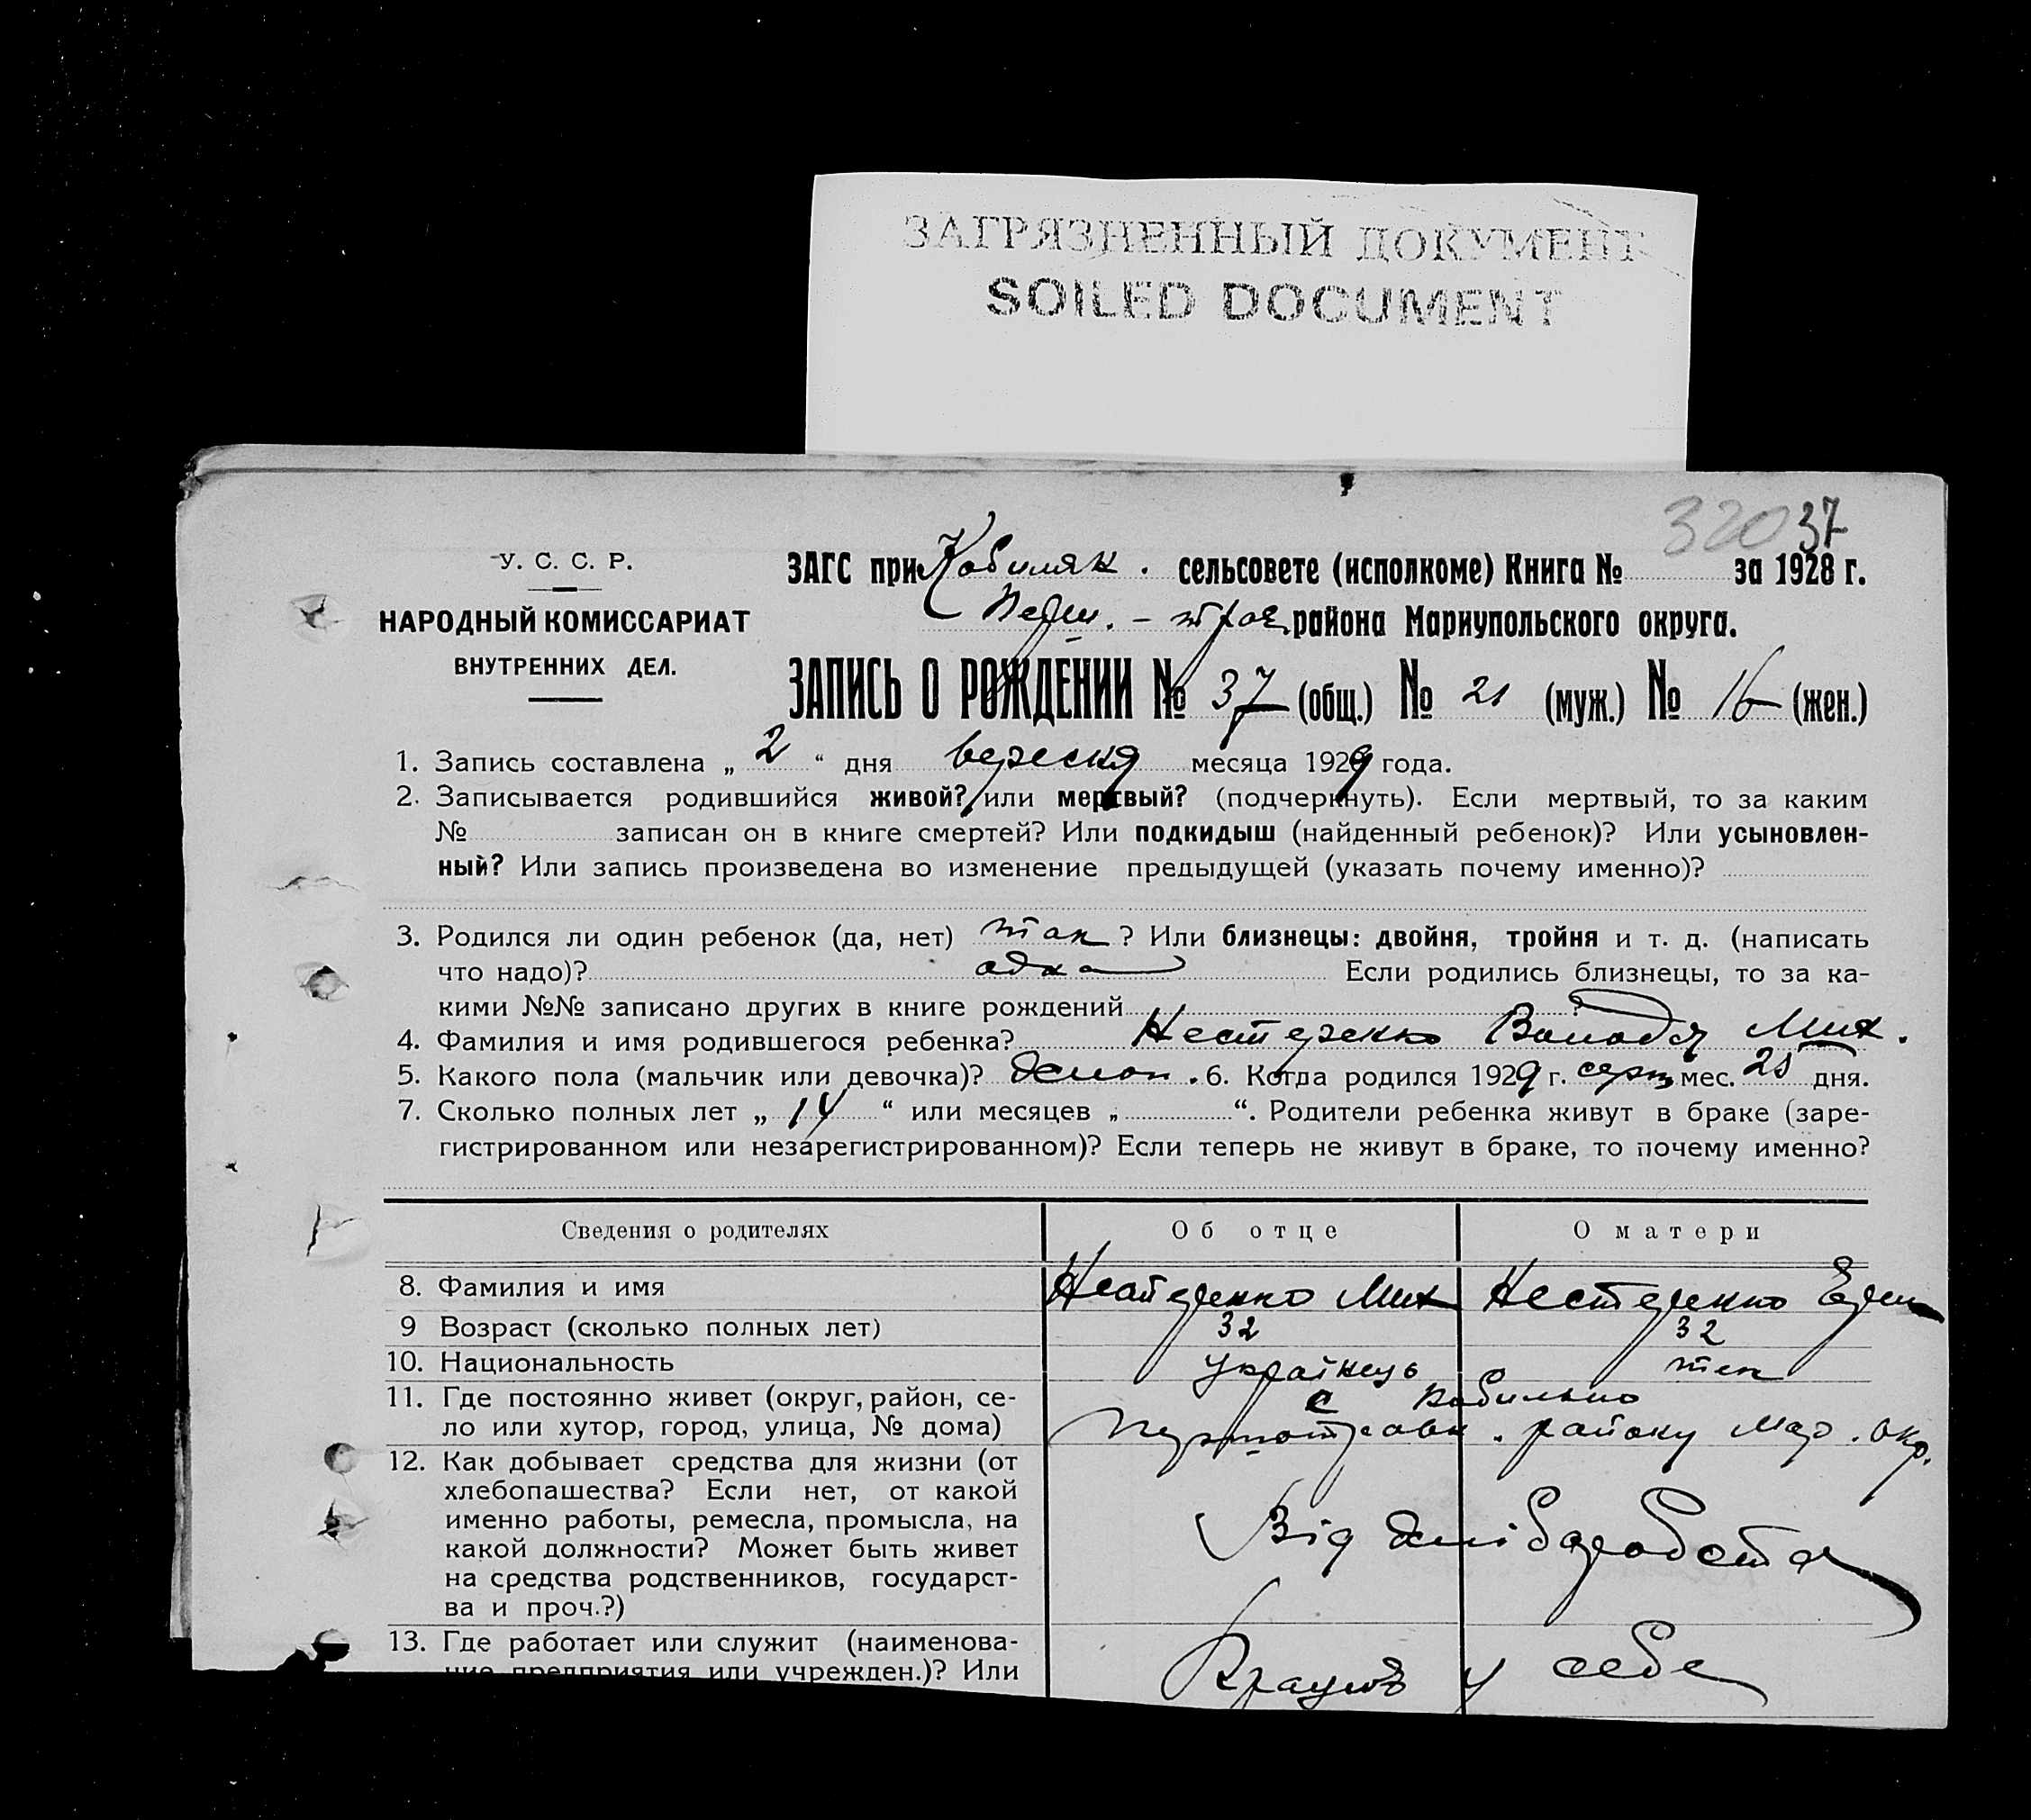 ЗАГРЯЗНЕННЫЙ ДОКУМЕНТ
SOILED DOCUMENT
320 37
У. С. С. Р.
НАРОДНЫЙ КОМИССАРИАТ
ВНУТРЕННИХ ДЕЛ.
ЗАГС при Кобиляк. сельсовете (исполкоме) Книга № за 1928 г.
Перш. - трав. района Мариупольского округа.
ЗАПИСЬ О РОЖДЕНИИ № 37 (общ.) № 21 (муж.) № 16 (жен.)
1. Запись составлена „ 2 “ дня вересня месяца 1929 года.
2. Записывается родившийся живой? или мертвый? (подчеркнуть). Если мертвый, то за каким
№ записан он в книге смертей? Или подкидыш (найденный ребенок)? Или усыновлен-
ный? Или запись произведена во изменение предыдущей (указать почему именно)?
3. Родился ли один ребенок (да, нет) так ? Или близнецы: двойня, тройня и т. д. (написать
что надо)? одна Если родились близнецы, то за ка-
кими №№ записано других в книге рождений ?
4. Фамилия и имя родившегося ребенка? Нестеренко Володя Мих.
5. Какого пола (мальчик или девочка)? 6. Когда родился 1929 г. серп. мес. 25 дня.
7. Сколько полных лет „ 14 “ или месяцев „ “. Родители ребенка живут в браке (заре-
гистрированном или незарегистрированном)? Если теперь не живут в браке, то почему именно?
Сведения о родителях Об отце О матери
8. Фамилия и имя Нестеренко Мих Нестеренко
9 Возраст (сколько полных лет) 32 32
10. Национальность Українець теж
11. Где постоянно живет (округ, район, се- с Кобильно
ло или хутор, город, улица, № дома) Першотравн. району Мар. окр.
12. Как добывает средства для жизни (от
хлебопашества? Если нет, от какой
именно работы, ремесла, промысла, на
какой должности? Может быть живет
на средства родственников, государст-
ва и проч.?) Від хліборобства
13. Где работает или служит (наименова- Працює у себе
ние предприятия или учрежден.)? Или